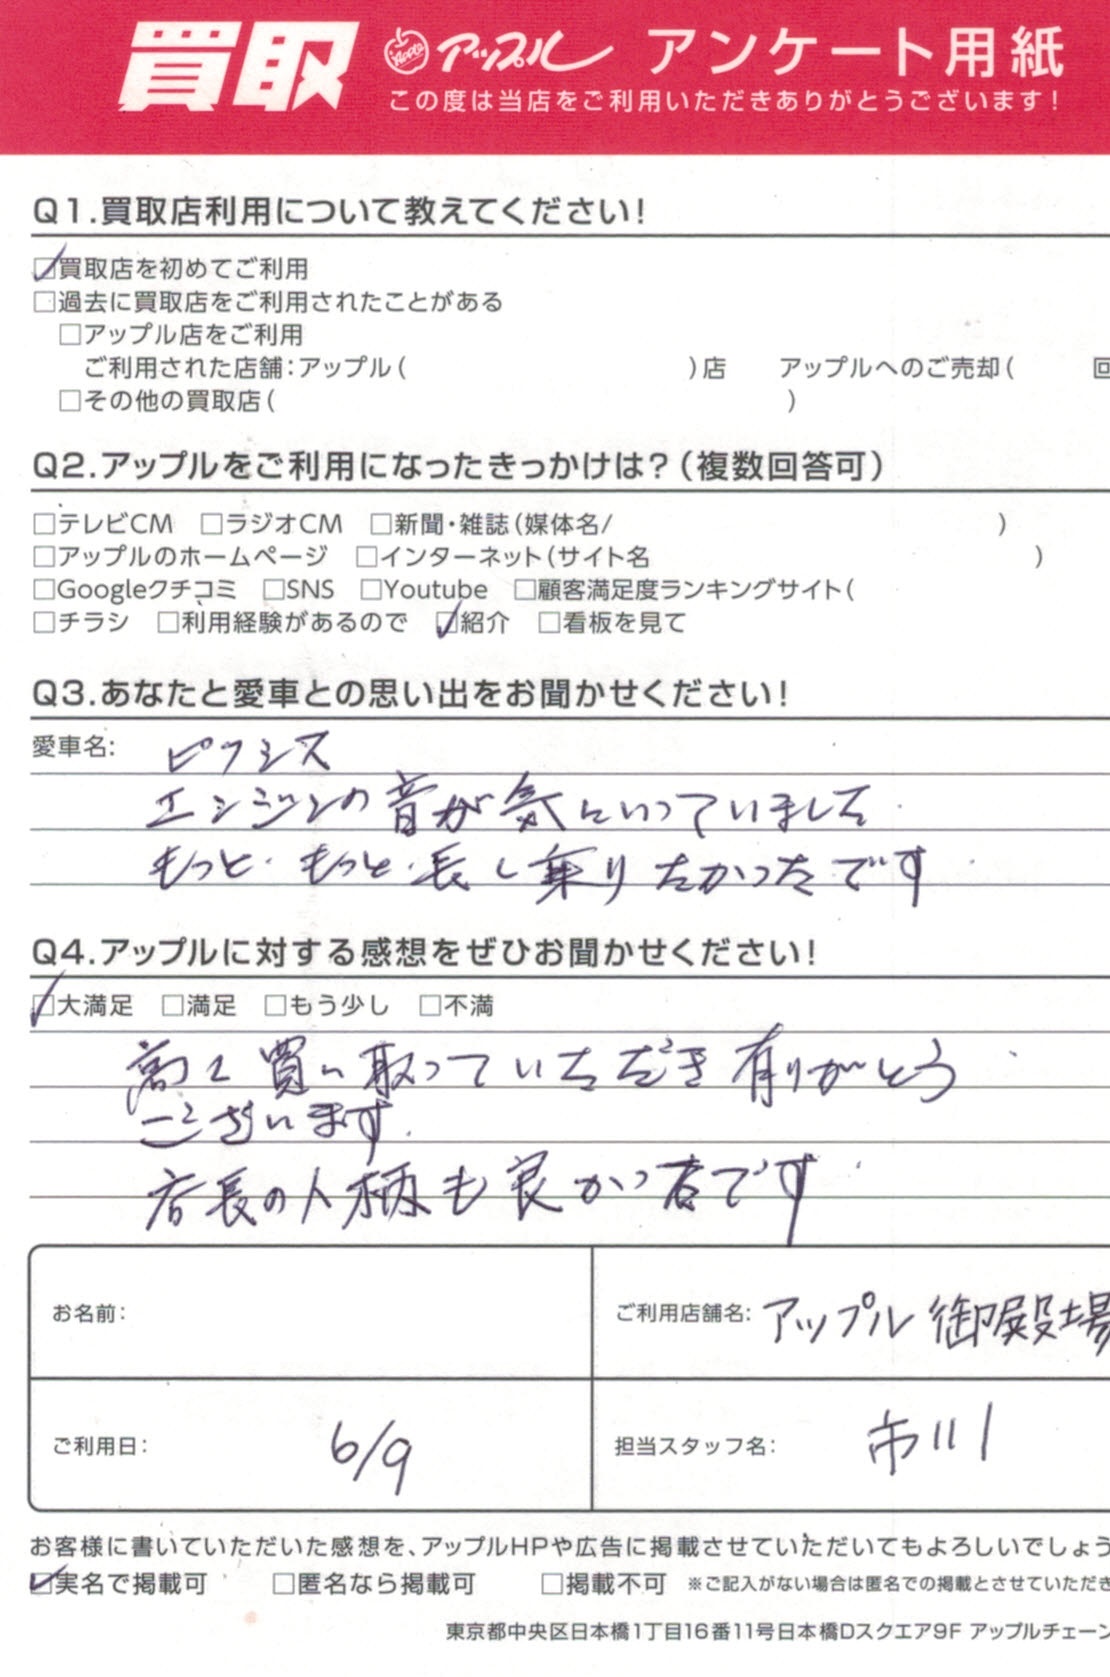 買取 Apple アップル アンケート用紙
この度は当店をご利用いただきありがとうございます!
Q1.買取店利用について教えてください!
☑買取店を初めてご利用
□過去に買取店をご利用されたことがある
□アップル店をご利用
ご利用された店舗:アップル( )店 アップルへのご売却( 回
□その他の買取店( )
Q2.アップルをご利用になったきっかけは?(複数回答可)
□テレビCM □ラジオCM □新聞・雑誌(媒体名/ )
□アップルのホームページ □インターネット(サイト名 )
□Googleクチコミ □SNS □Youtube □顧客満足度ランキングサイト(
□チラシ □利用経験があるので ☑紹介 □看板を見て
Q3.あなたと愛車との思い出をお聞かせください!
愛車名: ピクシス
エンジンの音が気にいっていました.
もっと.もっと.長く乗りたかったです.
Q4.アップルに対する感想をぜひお聞かせください!
☑大満足 □満足 □もう少し □不満
高く買い取っていただき有りがとう
ございます.
店長の人柄も良かったです.
お名前: ご利用店舗名: アップル 御殿場
ご利用日: 6/9 担当スタッフ名: 市川
お客様に書いていただいた感想を、アップルHPや広告に掲載させていただいてもよろしいでしょう
☑実名で掲載可 □匿名なら掲載可 □掲載不可 ※ご記入がない場合は匿名での掲載とさせていただき
東京都中央区日本橋1丁目16番11号日本橋Dスクエア9F アップルチェーン